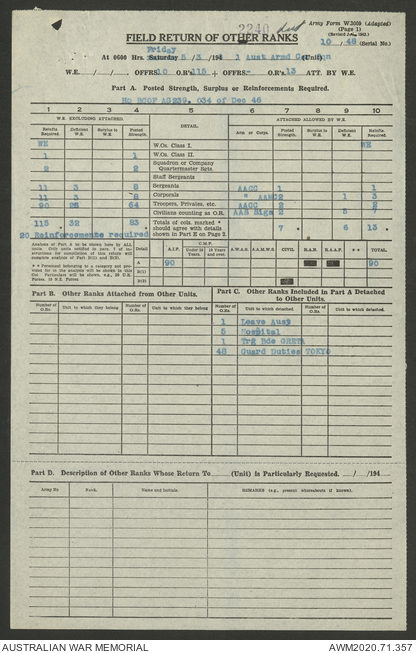 2240
Army Form W.3009 (Adapted)
(Page 1)
FIELD RETURN OF OTHER RANKS
10 / 48 (Serial No.)
Friday
At 0600 Hrs. Saturday 5/3/194 8 1 Aust Armd (Unit)
W.E. / / . OFFRS 10 O.R's 115 + OFFRS. O.R's 13 ATT. BY W.E.
Part A. Posted Strength, Surplus or Reinforcements Required.
HQ BCOF AG239. 034 of Dec 46
1 2 3 4 5 6 7 8 9 10
W.E. EXCLUDING ATTACHED. DETAIL. ATTACHED ALLOWED BY W.E.
Reinfts Required. Deficient W.E. Surplus to W.E. Posted Strength. Arm or Corps. Posted Strength. Surplus to W.E. Deficient W.E. Reinfts Required.
WE W.Os. Class I. WE
1 1 W.Os. Class II.
2 2 Squadron or Company Quartermaster Sgts.
Staff Sergeants
11 3 8 Sergeants AACC 1 1
11 3 8 Corporals " AAMC 2 1 3
90 64 Troopers, Privates, etc. AACC 2 2
Civilians counting as O.R. AAS Sigs 2 5 7
115 32 83 Totals of cols. marked * should agree with details shown in Part E on Page 2. 7 6 13
20 Reinforcements required
Analysis of Part A to be shown here by ALL units.
Detail A.I.F. C.M.F. A.W.A.S. A.A.M.W.S. CIVIL R.A.N. R.A.A.F. TOTAL.
A 90 90
B(1)
B(2)
Part B. Other Ranks Attached from Other Units.
Part C. Other Ranks Included in Part A Detached to Other Units.
Number of O.Rs. Unit to which they belong Number of O.Rs. Unit to which they belong Number of O.Rs. Unit to which detached. Number of O.Rs. Unit to which detached.
1 Leave Aust
5 Hospital
1 Trg Bde GRETA
48 Guard Duties TOKYO
Part D. Description of Other Ranks Whose Return To (Unit) is Particularly Requested. / /194
Army No. Rank. Name and Initials. REMARKS (e.g., present whereabouts if known).
AUSTRALIAN WAR MEMORIAL AWM2020.71.357